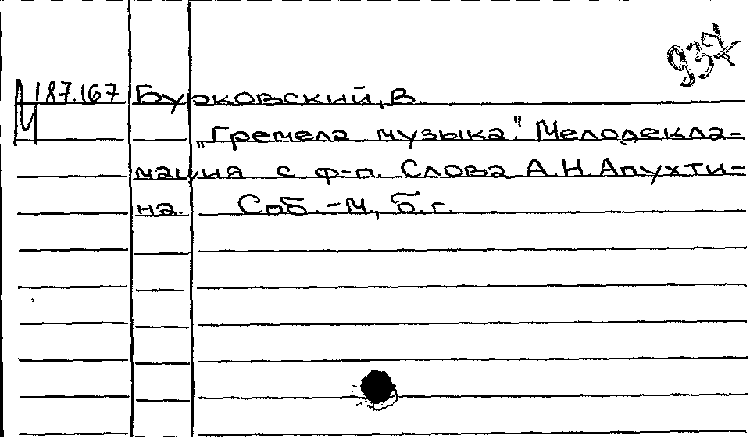 937
М 187.167 Бурковский, В.
„Гремела музыка". Мелодекла-
мация с ф-п. Слова А.Н. Апухти-
на. Спб.-М, б.г.